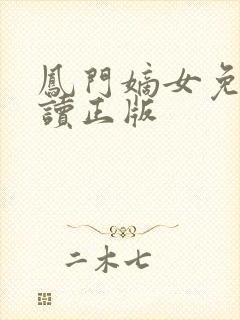 鳳門嫡女免
讀正版
二木七